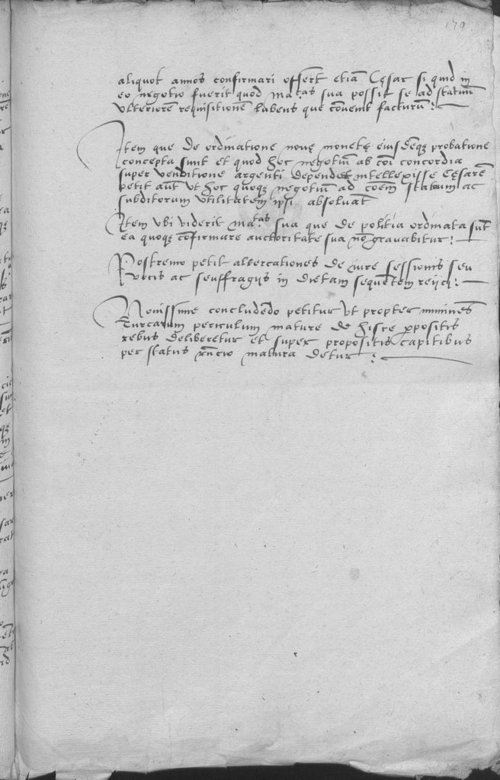 170
aliquot annos confirmari offert etiā Cęsar si quid in
eo negotio fuerit quod Ma.tas sua possit se ad statuū
ulteriorē requisitionē habens que cōvenit facturū :
Item que de ordinatione novę monetę eiusdēqȝ probatione
concepta sunt et quod hoc negotiū ab cōi concordia
super venditione argenti dependet intellexisse Cęsarē
petit aūt ut hoc quoqȝ negotiū ad cōem statuum ac
subditorum utilitatem ipsi absolvāt
Item ubi viderit ma.tas sua que de politia ordinata sūt
ea quoqȝ cōfirmare auctoritate sua nō gravabitur :
Postremo petit altercationes de iure sessionis seu
vocis ac seuffragijs in dietam sequētem reijci :
Novissime concludēdo petitur ut propter iminēs
Turcarum periculum mature de hisce ꝓpositis
rebus deliberetur et super propositis capitibus
per status rn̄cio matura detur :